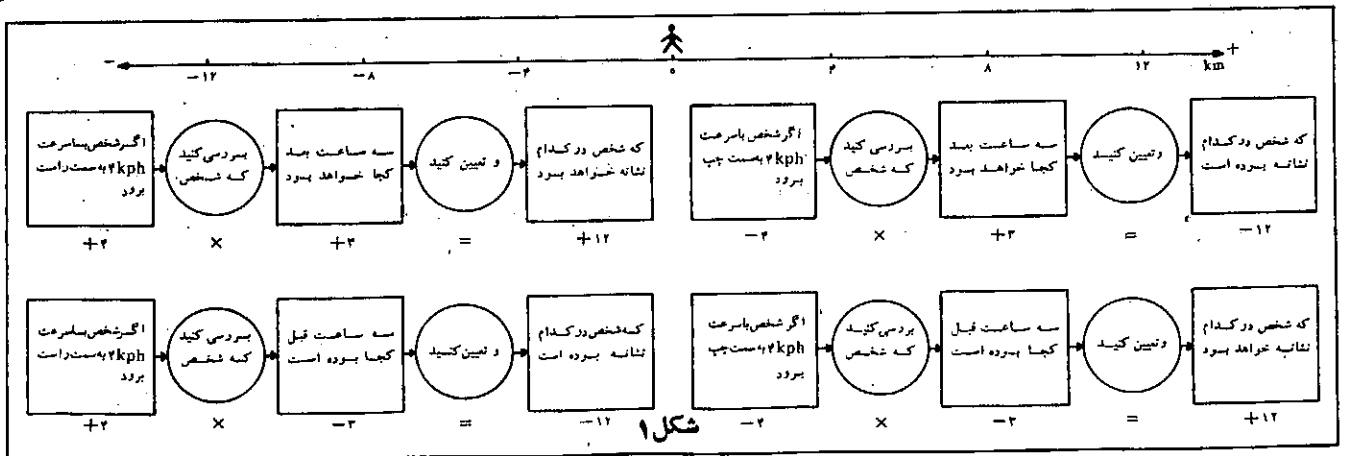 - −۱۲ −۸ −۴ ۰ ۴ ۸ ۱۲ km +
اگر شخص با سرعت
۴kph به سمت راست
برود
بررسی کنید
که شخص
سه ساعت بعد
کجا خواهد بود
و تعیین کنید
که شخص در کدام
نشانه خواهد بود
+۴ × +۳ = +۱۲
اگر شخص با سرعت
۴kph به سمت چپ
برود
بررسی کنید
که شخص
سه ساعت بعد
کجا خواهد بود
و تعیین کنید
که شخص در کدام
نشانه بوده است
−۴ × +۳ = −۱۲
اگر شخص با سرعت
۴kph به سمت راست
برود
بررسی کنید
که شخص
سه ساعت قبل
کجا بوده است
و تعیین کنید
که شخص در کدام
نشانه بوده است
+۴ × −۳ = −۱۲
اگر شخص با سرعت
۴kph به سمت چپ
برود
بررسی کنید
که شخص
سه ساعت قبل
کجا بوده است
و تعیین کنید
که شخص در کدام
نشانه خواهد بود
−۴ × −۳ = +۱۲
شکل ۱